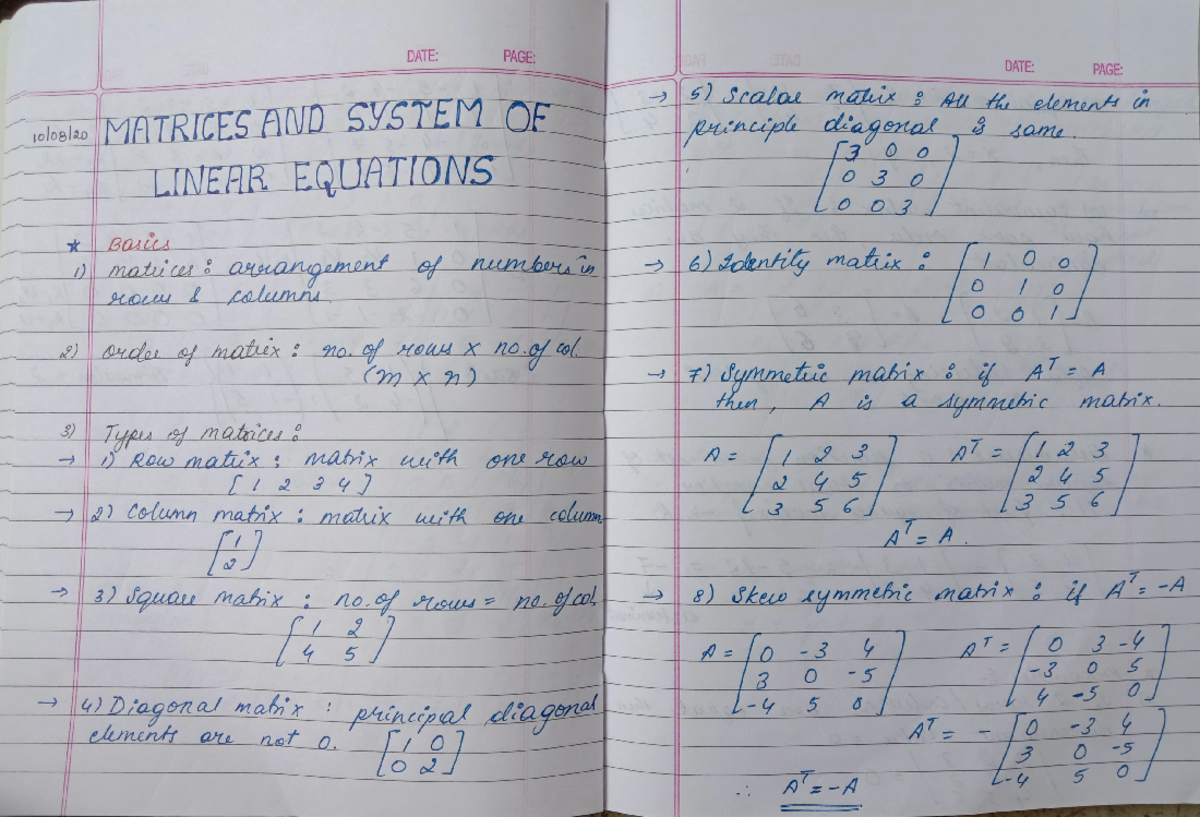 DATE: PAGE:
10/08/20 MATRICES AND SYSTEM OF
LINEAR EQUATIONS
* Basics
1) matrices : arrangement of numbers in
rows & columns.
2) order of matrix : no. of rows x no. of col.
(m x n)
3) Types of matrices :
→ 1) Row matrix : matrix with one row
[1 2 3 4]
→ 2) Column matrix : matrix with one column
[1
2]
→ 3) Square matrix : no. of rows = no. of col.
[1 2
4 5]
→ 4) Diagonal matrix : principal diagonal
elements are not 0. [1 0
0 2]
DATE: PAGE:
→ 5) Scalar matrix : All the elements in
principle diagonal is same.
[3 0 0
0 3 0
0 0 3]
→ 6) Identity matrix : [1 0 0
0 1 0
0 0 1]
→ 7) Symmetric matrix : if Aᵀ = A
then, A is a symmetric matrix.
A = [1 2 3 Aᵀ = [1 2 3
2 4 5 2 4 5
3 5 6] 3 5 6]
Aᵀ = A.
→ 8) Skew symmetric matrix : if Aᵀ = -A
A = [0 -3 4 Aᵀ = [0 3 -4
3 0 -5 -3 0 5
-4 5 0] 4 -5 0]
Aᵀ = - [0 -3 4
3 0 -5
-4 5 0]
∴ Aᵀ = -A